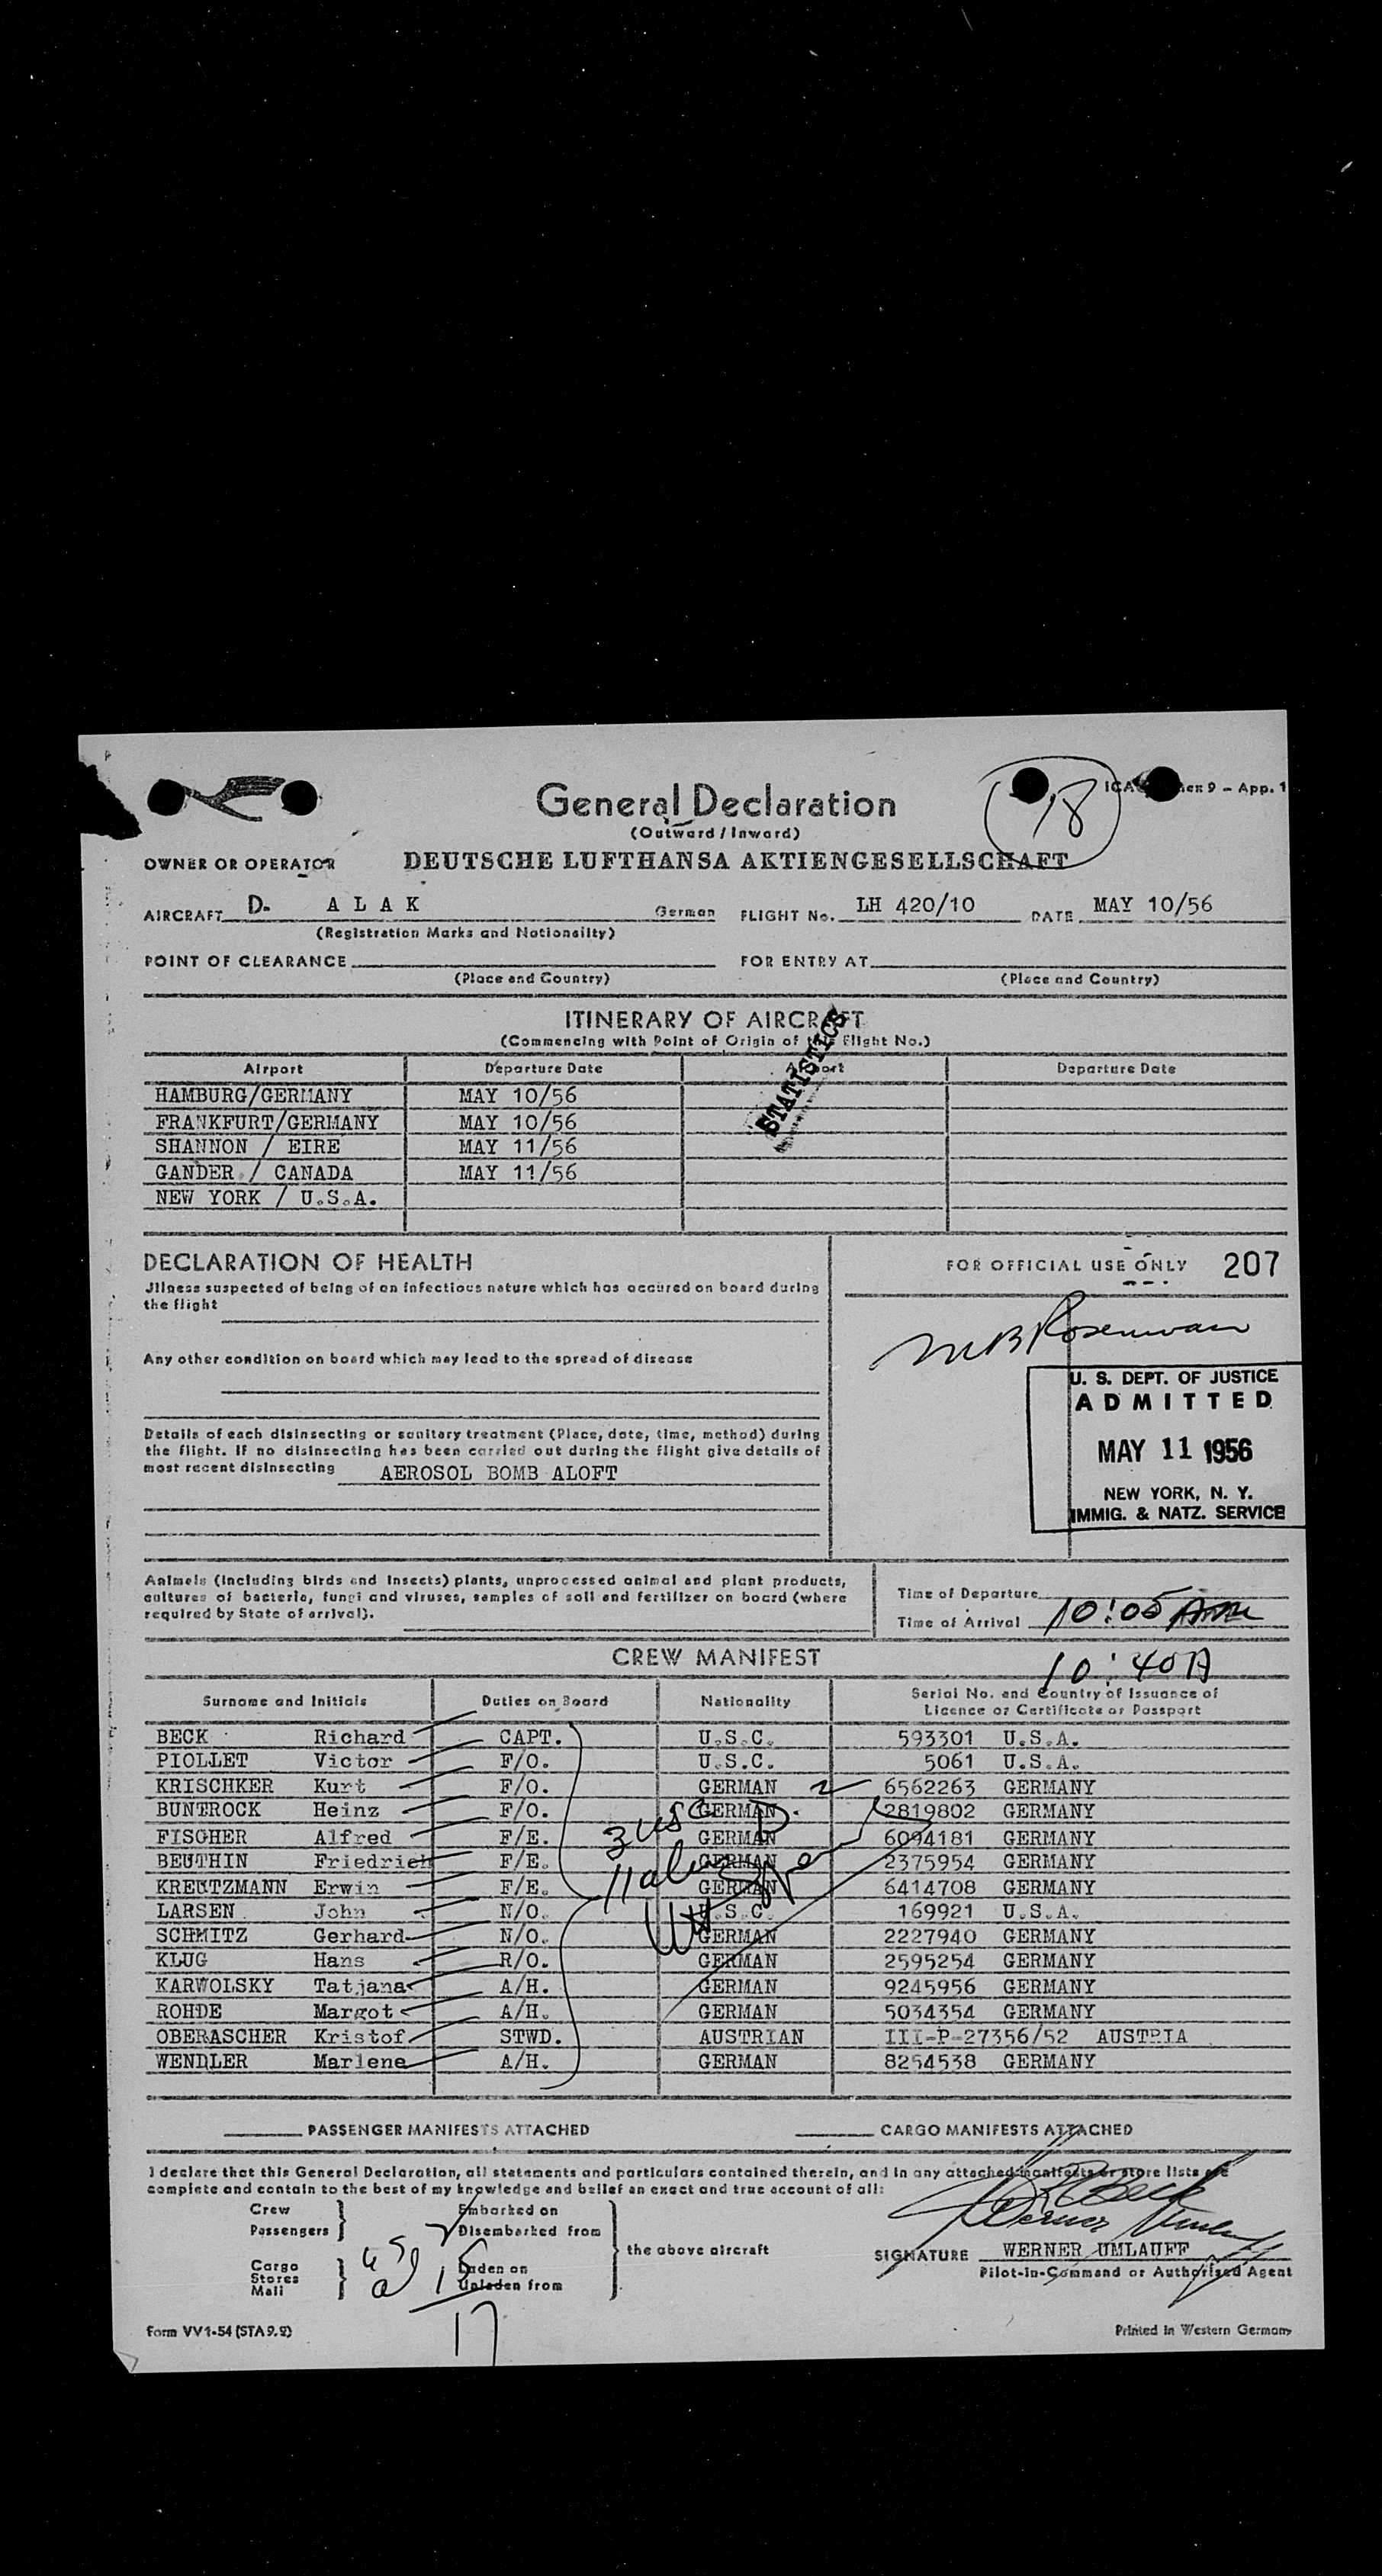 ICA Annex 9 – App. 1
18
General Declaration
(Outward / Inward)
OWNER OR OPERATOR DEUTSCHE LUFTHANSA AKTIENGESELLSCHAFT
AIRCRAFT D- A L A K German FLIGHT No. LH 420/10 DATE MAY 10/56
(Registration Marks and Nationality)
POINT OF CLEARANCE FOR ENTRY AT
(Place and Country) (Place and Country)
ITINERARY OF AIRCRAFT
(Commencing with Point of Origin of the Flight No.)
STATISTICS
Airport Departure Date Airport Departure Date
HAMBURG/GERMANY MAY 10/56
FRANKFURT/GERMANY MAY 10/56
SHANNON / EIRE MAY 11/56
GANDER / CANADA MAY 11/56
NEW YORK / U.S.A.
DECLARATION OF HEALTH
Jllness suspected of being of an infectious nature which has occured on board during
the flight
Any other condition on board which may lead to the spread of disease
Details of each disinsecting or sanitary treatment (Place, date, time, method) during
the flight. If no disinsecting has been carried out during the flight give details of
most recent disinsecting AEROSOL BOMB ALOFT
FOR OFFICIAL USE ONLY 207
U. S. DEPT. OF JUSTICE
ADMITTED
MAY 11 1956
NEW YORK, N. Y.
IMMIG. & NATZ. SERVICE
Animals (including birds and insects) plants, unprocessed animal and plant products,
cultures of bacteria, fungi and viruses, samples of soil and fertilizer on board (where
required by State of arrival).
Time of Departure
Time of Arrival 10:05 Am
10:40A
CREW MANIFEST
Surname and Initials Duties on Board Nationality Serial No. and Country of Issuance of
Licence or Certificate or Passport
BECK Richard CAPT. U.S.C. 593301 U.S.A.
PIOLLET Victor F/O. U.S.C. 5061 U.S.A.
KRISCHKER Kurt F/O. GERMAN 6562263 GERMANY
BUNTROCK Heinz F/O. GERMAN 2819802 GERMANY
FISCHER Alfred F/E. GERMAN 6094181 GERMANY
BEUTHIN Friedrich F/E. GERMAN 2375954 GERMANY
KREUTZMANN Erwin F/E. GERMAN 6414708 GERMANY
LARSEN John N/O. U.S.C. 169921 U.S.A.
SCHMITZ Gerhard N/O. GERMAN 2227940 GERMANY
KLUG Hans R/O. GERMAN 2595254 GERMANY
KARWOLSKY Tatjana A/H. GERMAN 9245956 GERMANY
ROHDE Margot A/H. GERMAN 5034354 GERMANY
OBERASCHER Kristof STWD. AUSTRIAN III-P-27356/52 AUSTRIA
WENDLER Marlene A/H. GERMAN 8254538 GERMANY
3 usc
PASSENGER MANIFESTS ATTACHED CARGO MANIFESTS ATTACHED
I declare that this General Declaration, all statements and particulars contained therein, and in any attached manifests or store lists are
complete and contain to the best of my knowledge and belief an exact and true account of all:
Crew Embarked on
Passengers Disembarked from
the above aircraft
Cargo Laden on
Stores
Mail Unladen from
17
SIGNATURE WERNER UMLAUFF
Pilot-in-Command or Authorised Agent
Form VV1-54 (STA 9.2) Printed in Western Germany